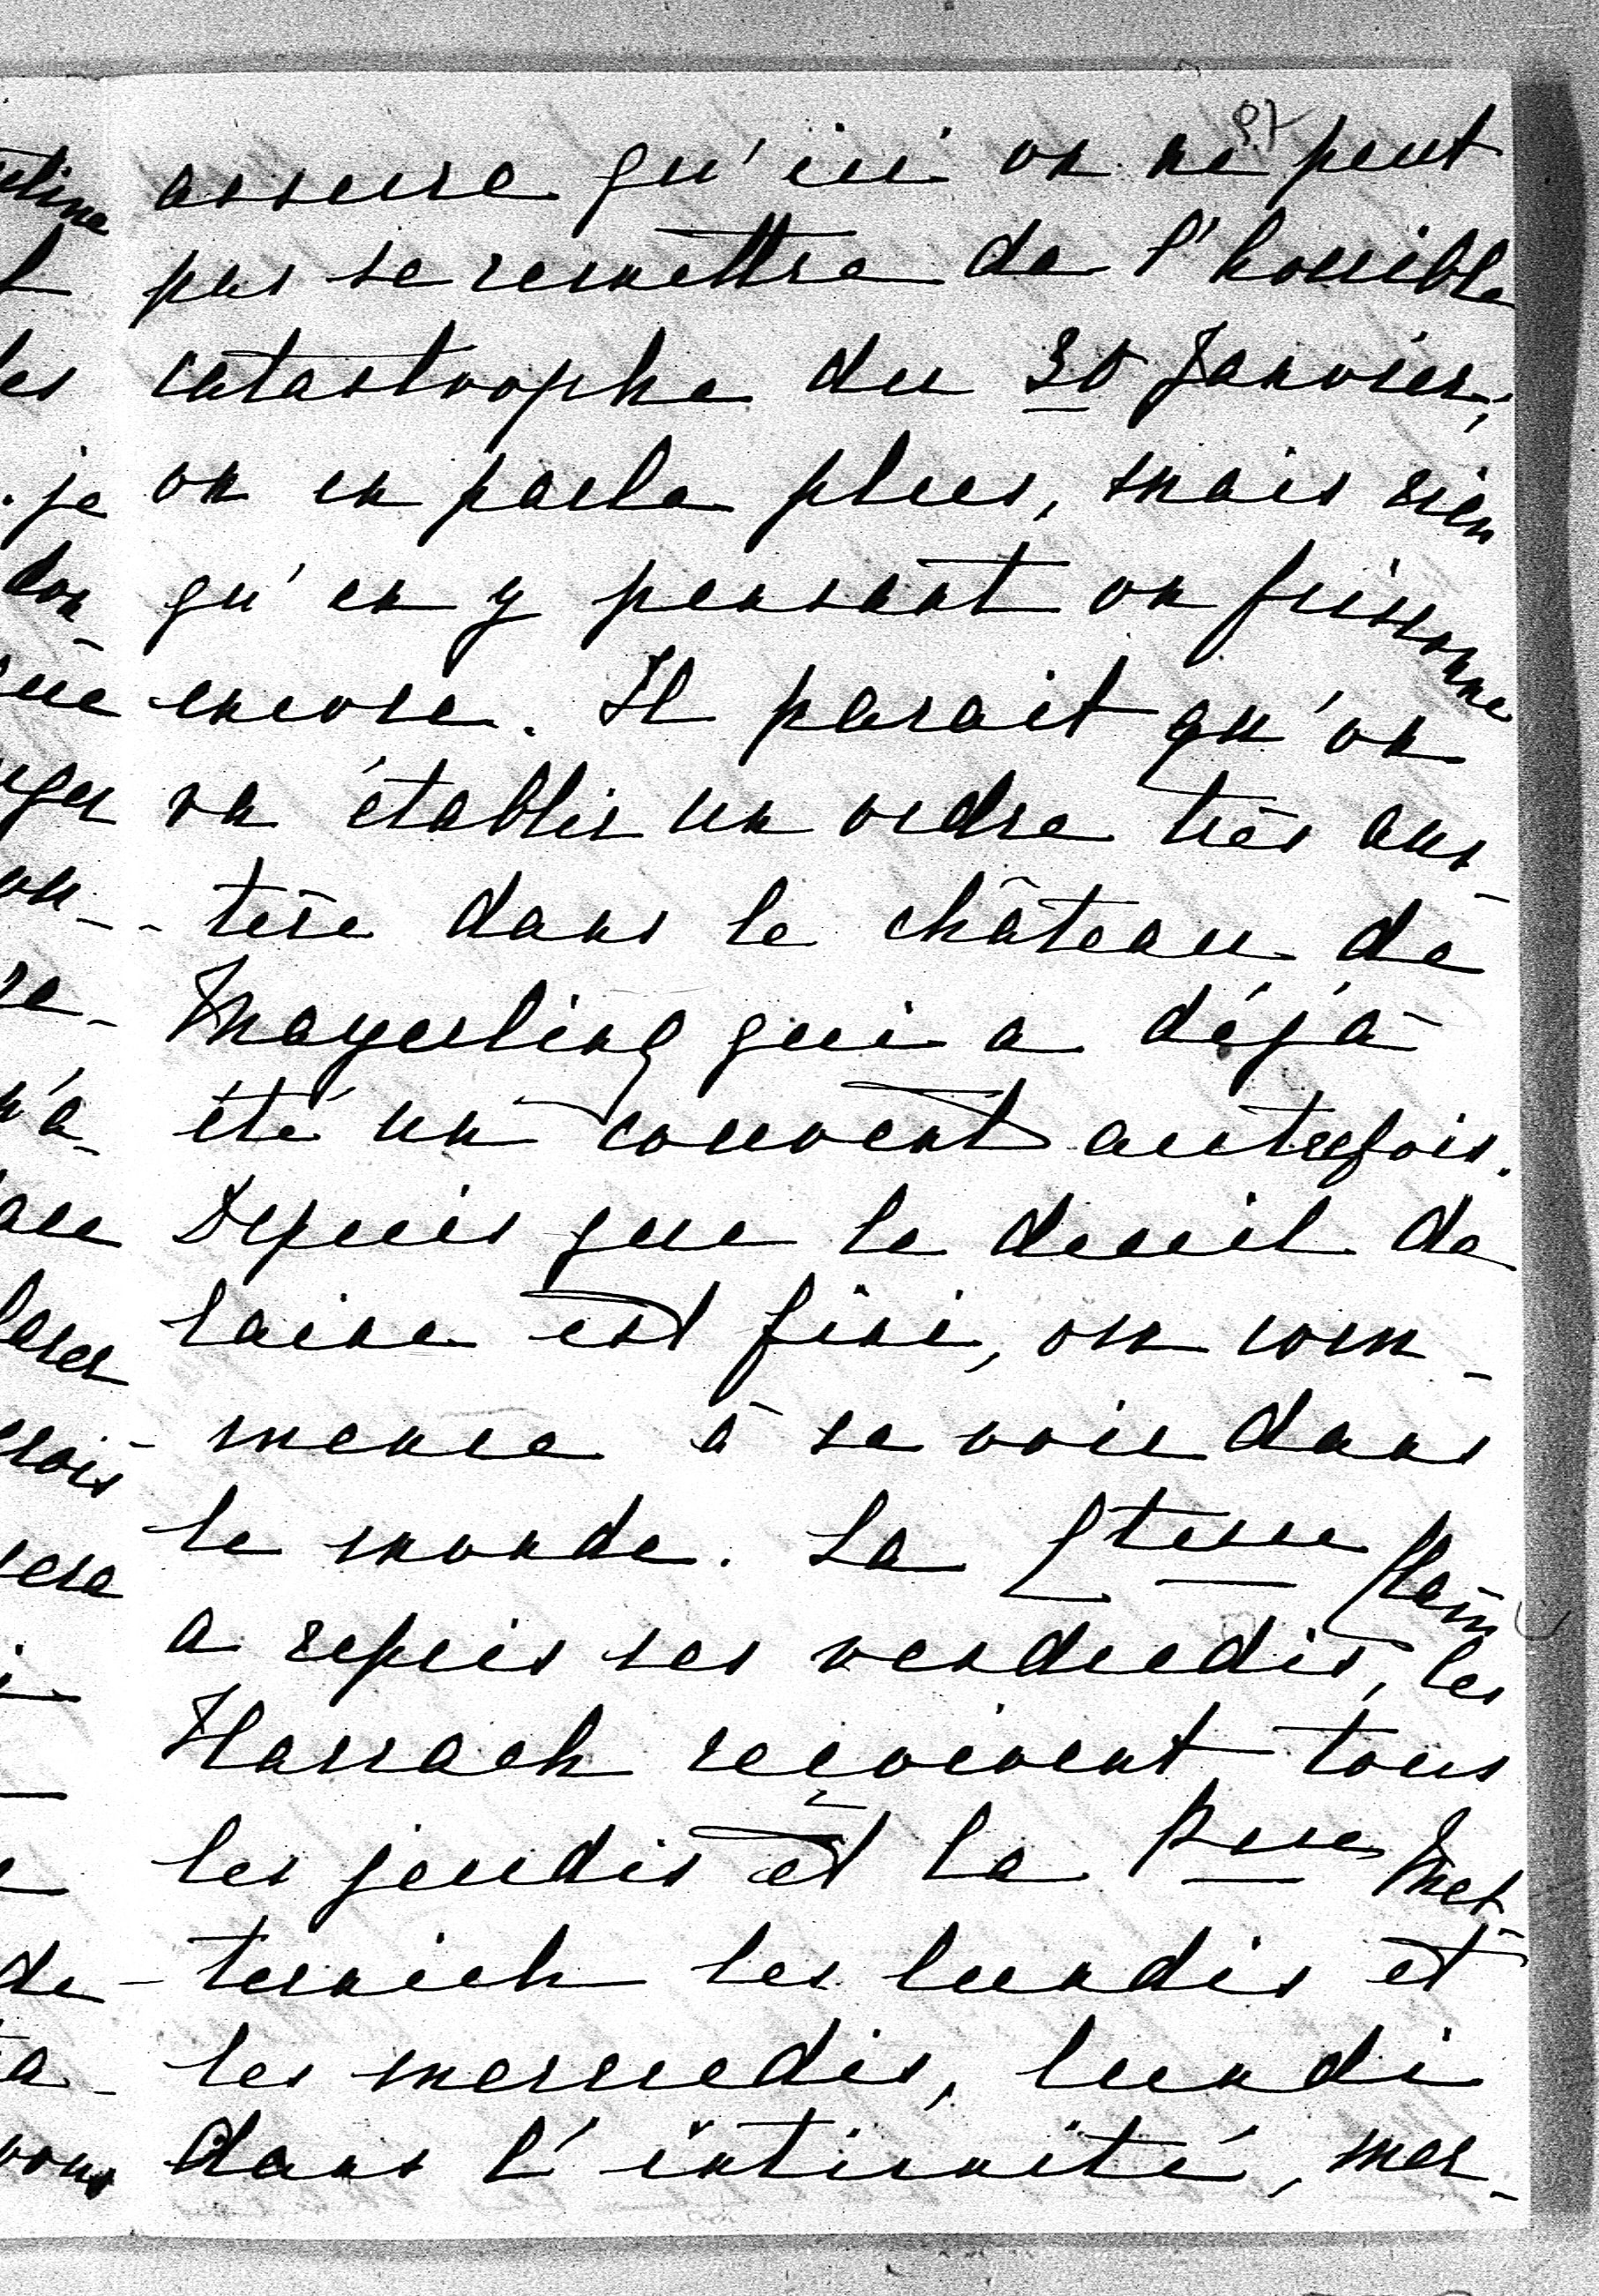 87
assure qu'ici on ne peut
pas se remettre de l'horrible
catastrophe du 30 Janvier;
on en parle plus, mais rien
qu'en y pensant on frissonne
encore. Il parait qu'on
va établir un ordre très aus-
-tère dans le château de
Mayerling qui a déjà
été un couvent autrefois.
Depuis que le deuil de
laine est fini, on com-
-mence à se voir dans
le monde. La Ctesse
a repris ses vendredis, les
Harrach reçoivent tous
les jeudis et la Psse Met-
-ternich les lundis et
les mercredis, lundi
dans l'intimité, mer-